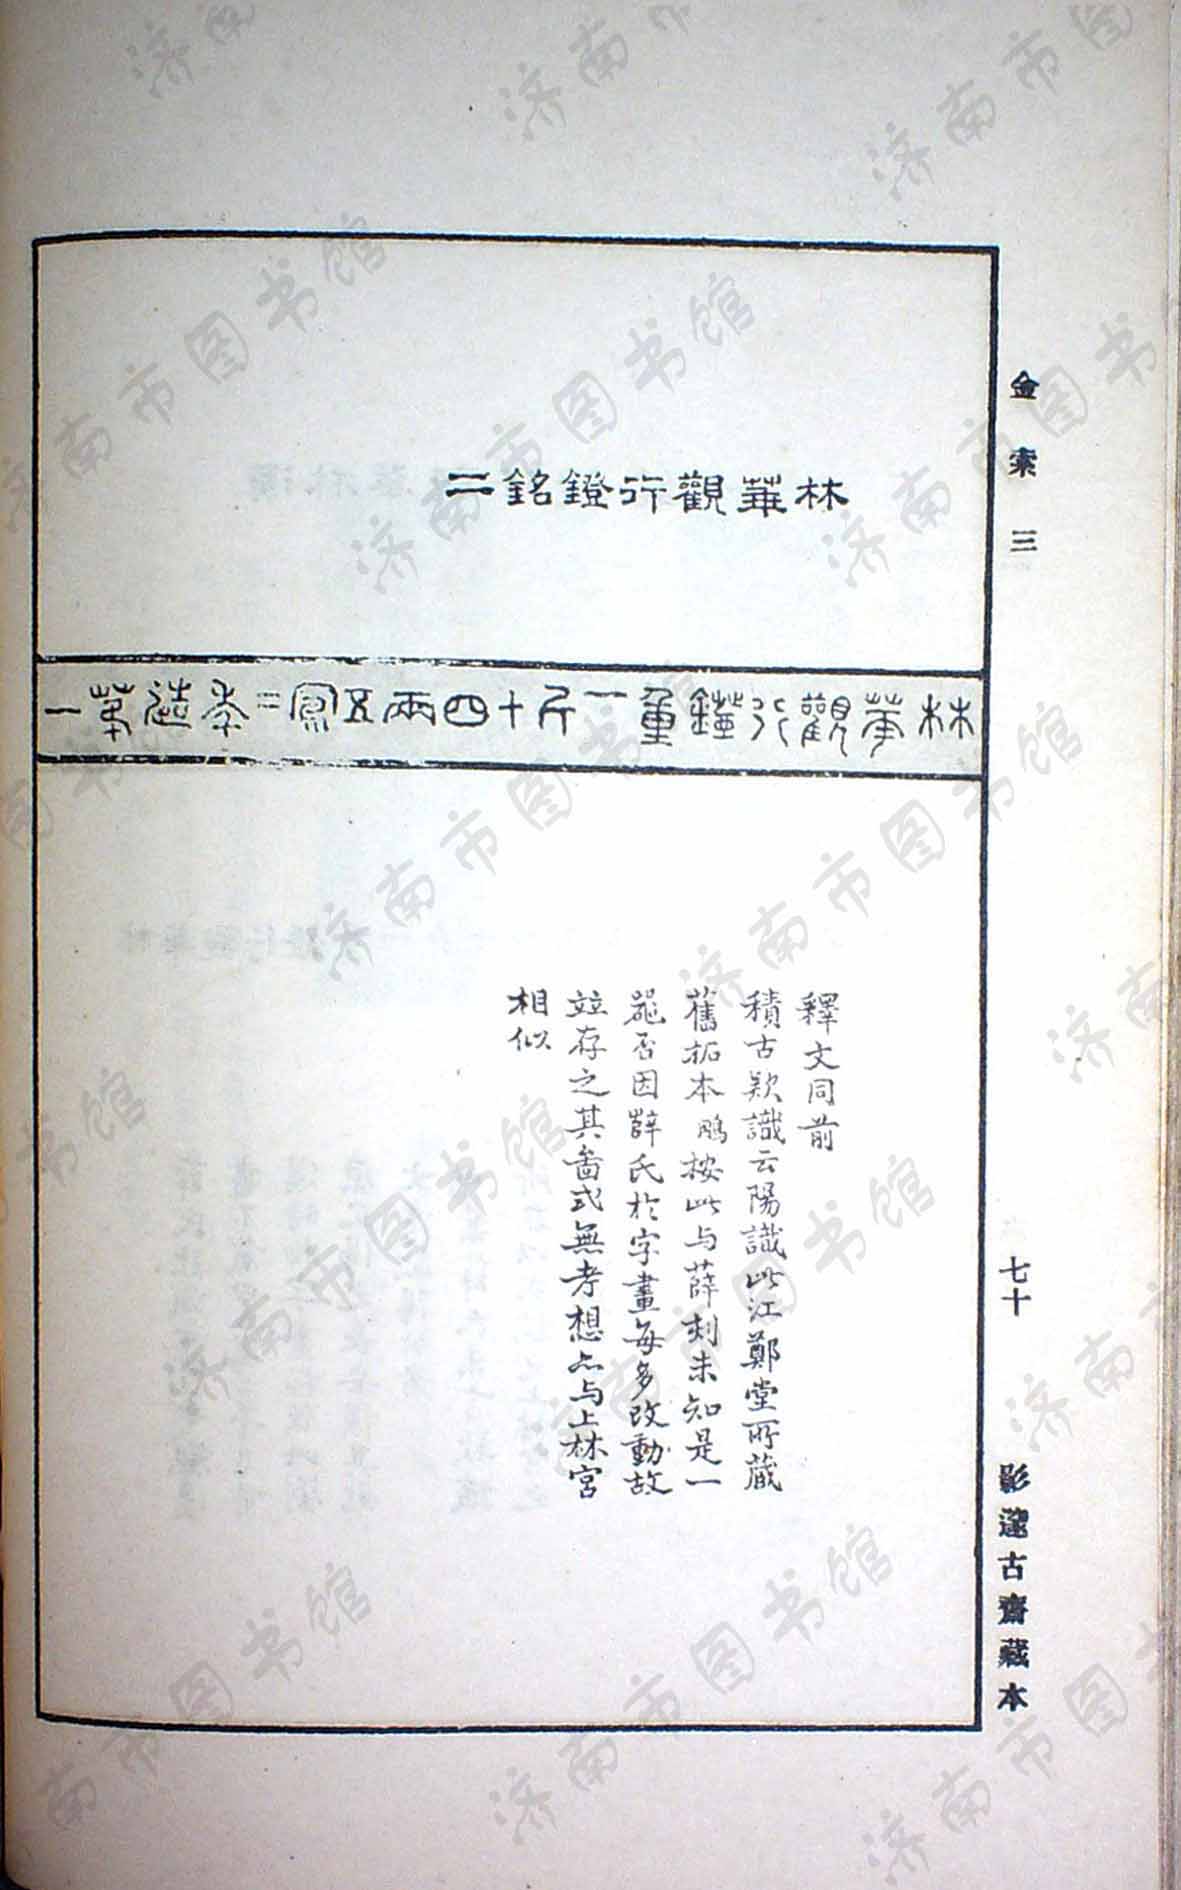 金索三
七十
影遯古齋藏本
林華觀行鐙銘二
林華觀行鐙重一斤十四兩五鳳二年造苐一
釋文同前
積古款識云陽識此江鄭堂所藏
舊拓本鵰按此与薛刻未知是一
器否因薛氏於字畫每多改動故
竝存之其啚式無考想亦与上林宮
相似
济南市图书馆